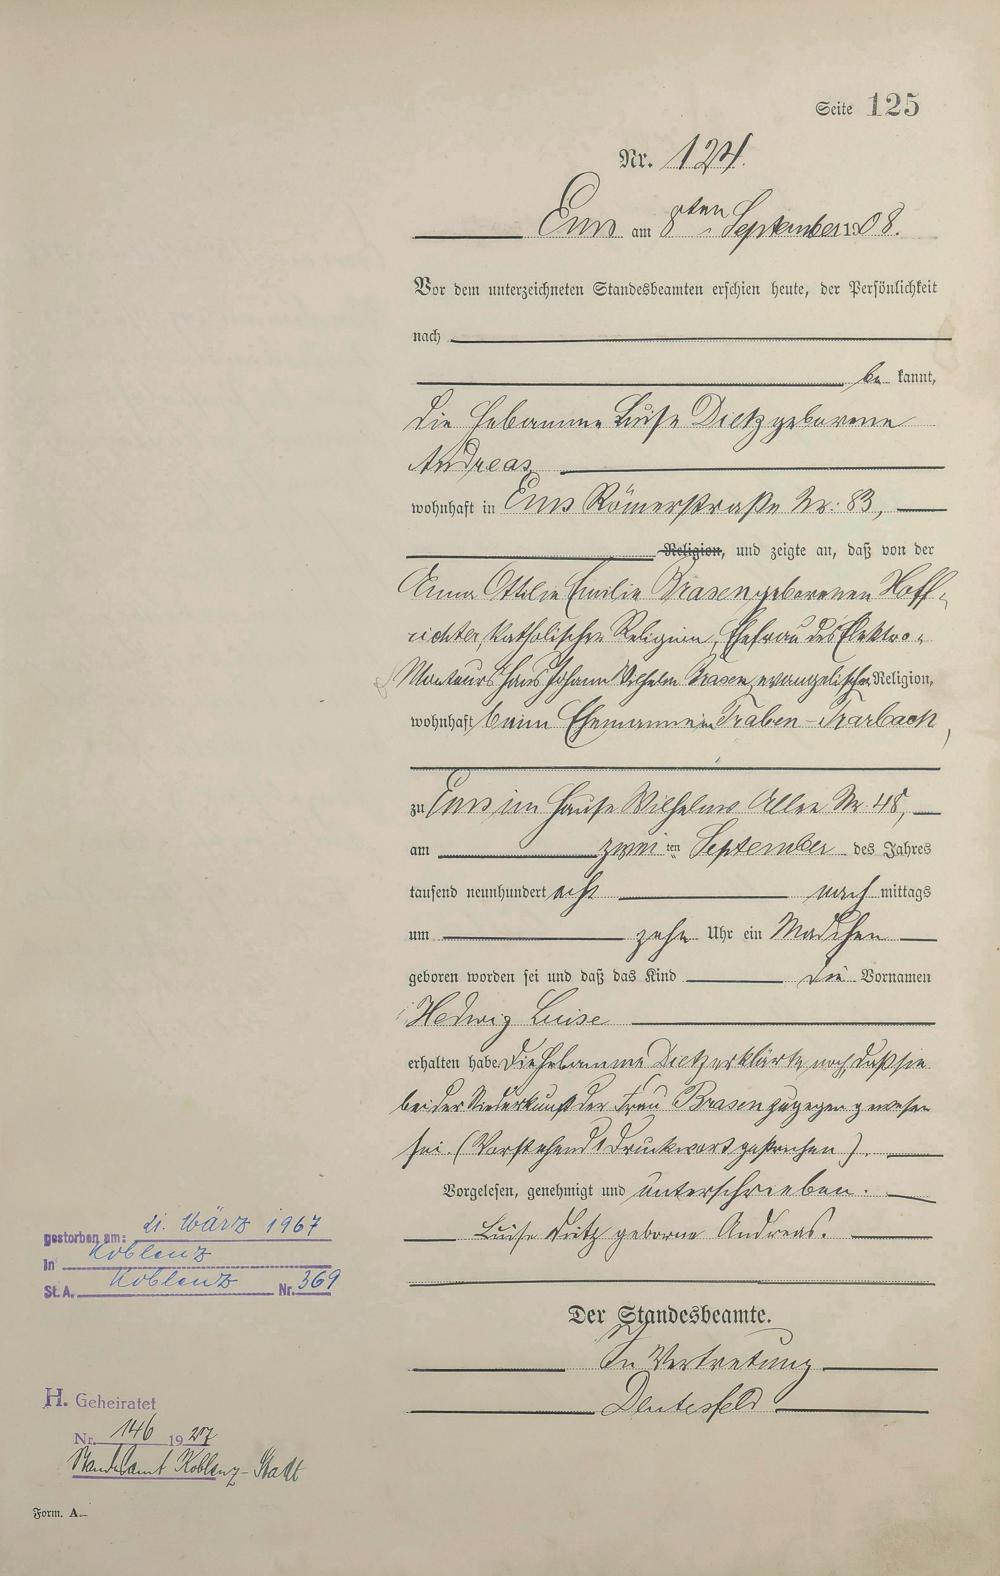 Seite 125
Nr. 124.
Ems am 8ten September 1908.
Vor dem unterzeichneten Standesbeamten erschien heute, der Persönlichkeit
nach
be kannt,
die Hebamme Luise Dietz geborene
Andreas
wohnhaft in Ems Römerstraße Nr. 83,
Religion, und zeigte an, daß von der
Anna Ottilie Emilie Brasen geborenen Hoff-
richter, katholischer Religion, Ehefrau des Elektro-
Monteurs Hans Johann Wilhelm Brasen, evangelischer Religion,
wohnhaft beim Ehemanne in Traben-Trarbach,
zu Ems im Hause Wilhelms Allee Nr. 48,
am zwei ten September des Jahres
tausend neunhundert acht nach mittags
um zehn Uhr ein Mädchen
geboren worden sei und daß das Kind die Vornamen
Hedwig Luise
erhalten habe. Die Hebamme Dietz erklärte noch, daß sie
bei der Niederkunft der Frau Brasen zugegen gewesen
sei. (Vorstehend 1 Druckwort gestrichen).
Vorgelesen, genehmigt und unterschrieben.
Luise Dietz geborne Andreas.
Der Standesbeamte.
In Vertretung
gestorben am: 21. März 1967
in Koblenz
St.A. Koblenz Nr. 369
H. Geheiratet
Nr. 146 1927
Standesamt Koblenz-Stadt
Form. A.